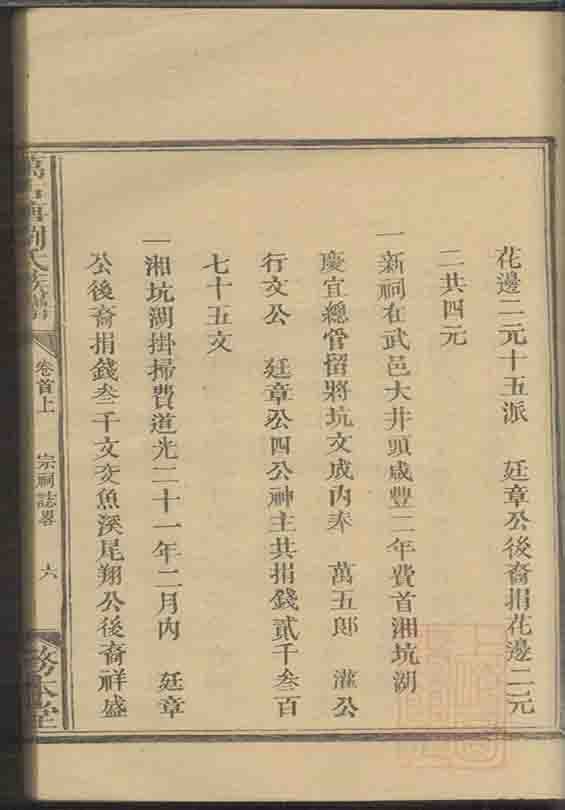 花邊二元十五派　廷章公後裔捐花邊二元
二共四元
一新祠在武邑大井頭咸豐二年費首湘坑湖
慶宜總管留將坑文成內奉　萬五郎　灌公
行文公　廷章公四公神主共捐錢貳千叁百
七十五文
一湘坑湖掛掃費道光二十一年二月內　廷章
公後裔捐錢叁千文交魚溪尾翔公後裔祥盛
劉氏族譜
卷首上
宗祠誌畧
六
敦本堂